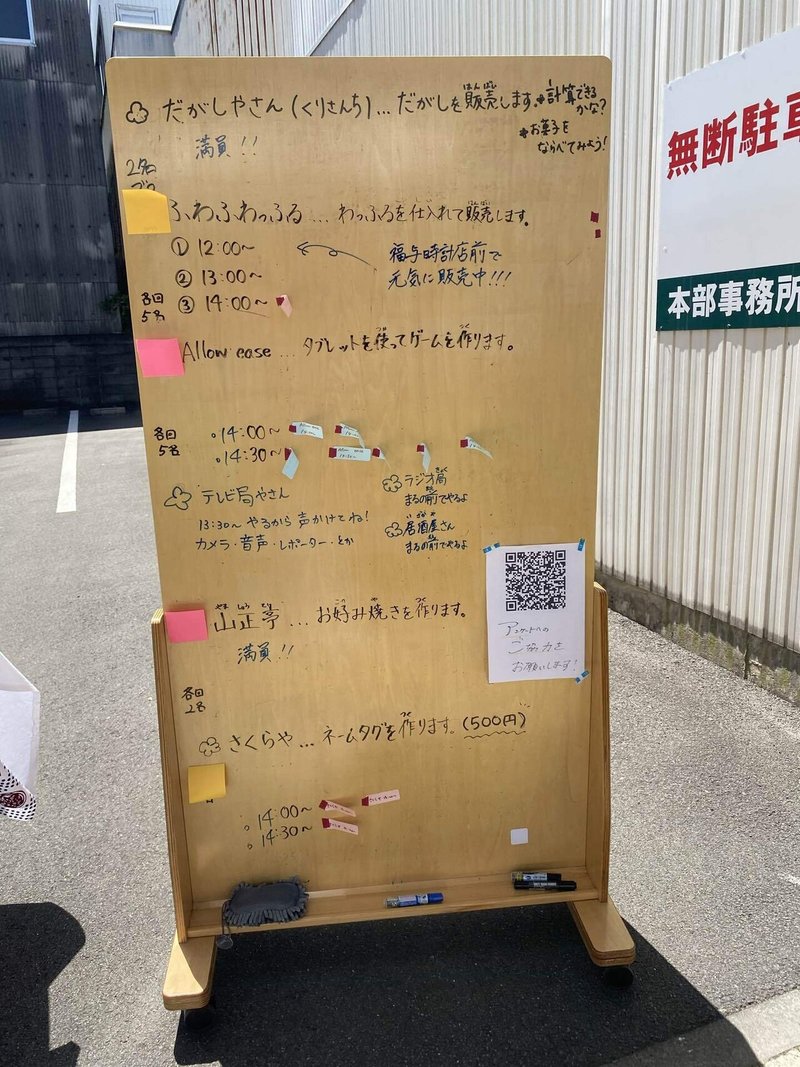 だがしやさん(くりさんち)…だがしを販売します。
はんばい
*計算できるかな?
*お菓子をならべてみよう!
満員!!
2名
ふわふわっふる…わっふるを仕入れて販売します。
① 12:00~
② 13:00~
③ 14:00~
福与時計店前で
元気に販売中!!!
各回
5名
Allow ease…タブレットを使ってゲームを作ります。
各回
5名
。14:00~
。14:30~
テレビ局やさん
13:30~やるから声かけてね!
カメラ・音声・レポーター・とか
ラジオ局
まるの前でやるよ
居酒屋さん
まるの前でやるよ
山正亭…お好み焼きを作ります。
満員!!
各回
2名
アンケートへの
ご協力を
お願いします!
さくらや…ネームタグを作ります。(500円)
。14:00~
。14:30~
無断駐車
本部事務所